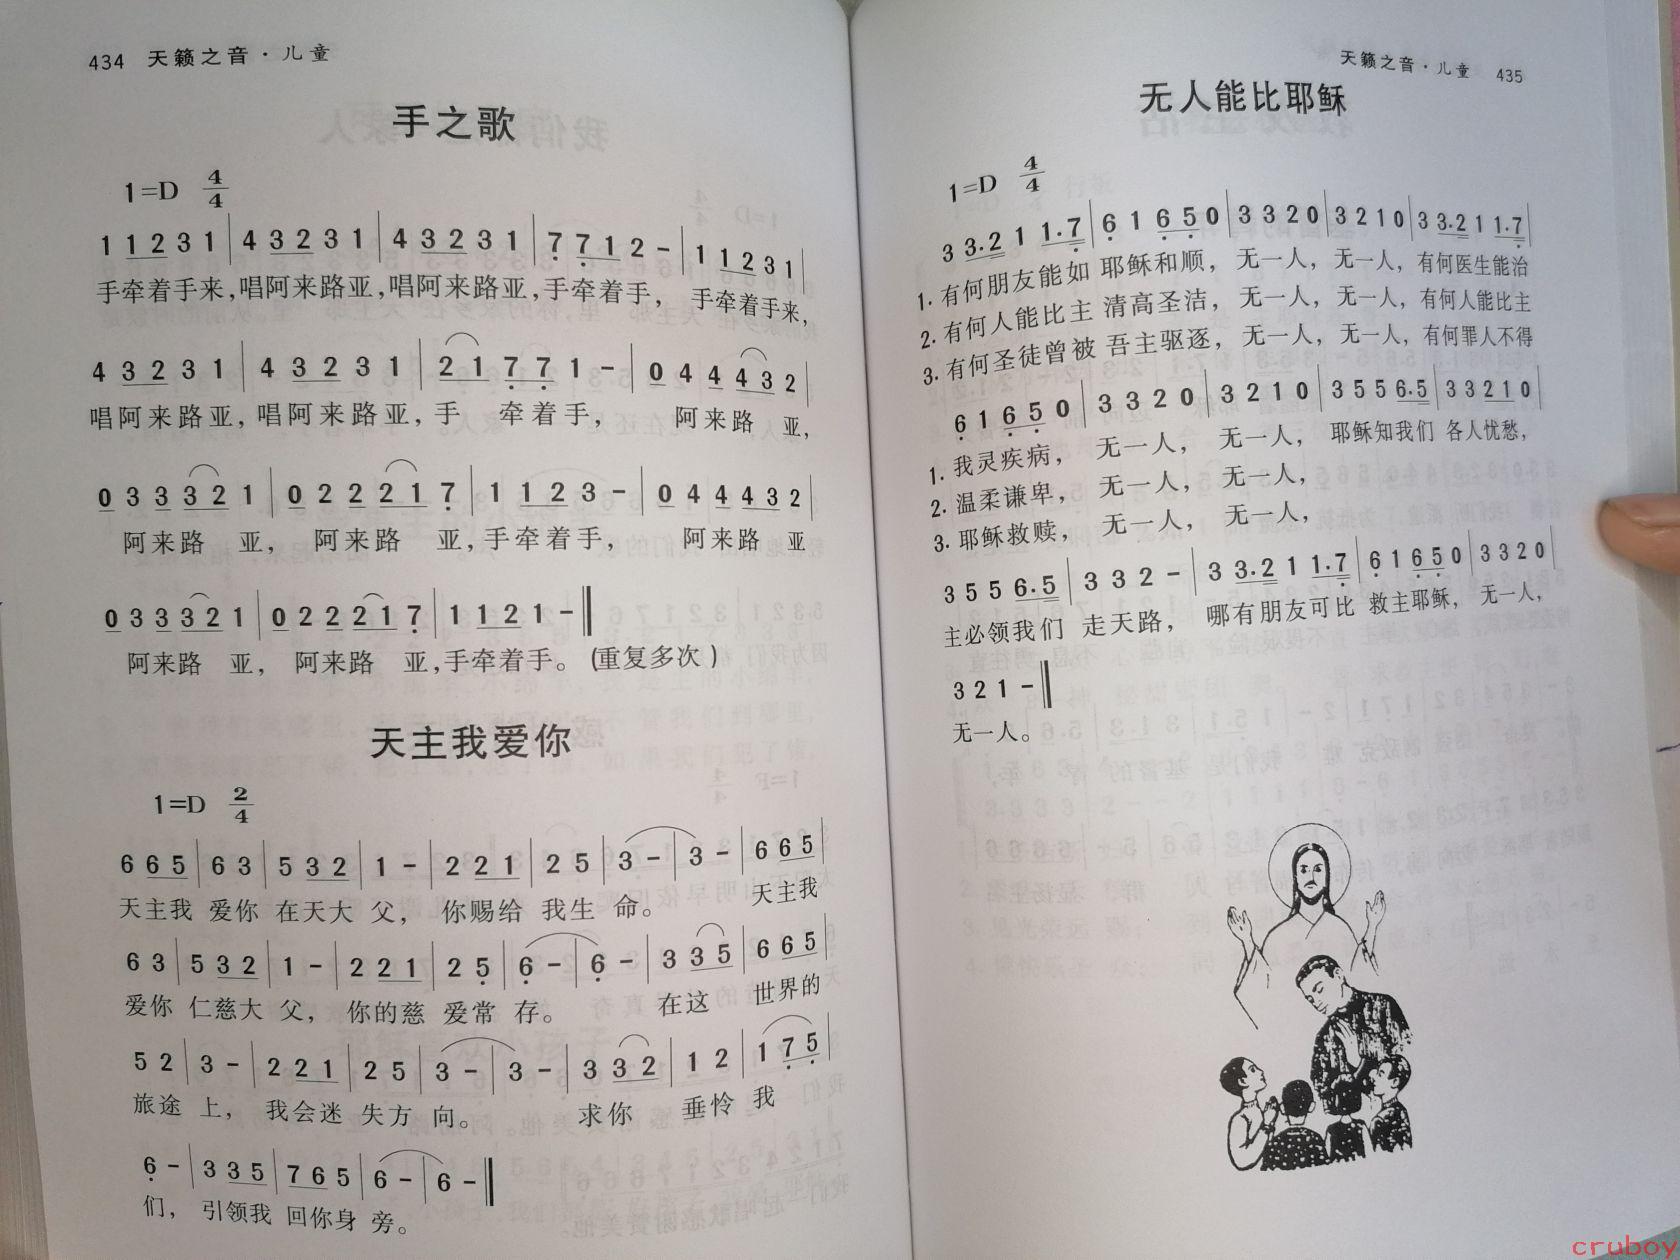 434 天籁之音·儿童
手之歌
1=D 4/4
1 1 2 3 1 | 4 3 2 3 1 | 4 3 2 3 1 | 7 7 1 2 - | 1 1 2 3 1 |
手牵着手来,唱阿来路亚,唱阿来路亚,手牵着手, 手牵着手来,
4 3 2 3 1 | 4 3 2 3 1 | 2 1 7 7 1 - | 0 4 4 4 3 2 |
唱阿来路亚,唱阿来路亚,手 牵着手, 阿来路 亚,
0 3 3 3 2 1 | 0 2 2 2 1 7 | 1 1 2 3 - | 0 4 4 4 3 2 |
阿来路 亚, 阿来路 亚,手牵着手, 阿来路 亚
0 3 3 3 2 1 | 0 2 2 2 1 7 | 1 1 2 1 - ‖
阿来路 亚, 阿来路 亚,手牵着手。(重复多次)
天主我爱你
1=D 2/4
6 6 5 | 6 3 | 5 3 2 | 1 - | 2 2 1 | 2 5 | 3 - | 3 - | 6 6 5 |
天主我 爱你 在天大 父, 你赐给 我生 命。 天主我
6 3 | 5 3 2 | 1 - | 2 2 1 | 2 5 | 6 - | 6 - | 3 3 5 | 6 6 5 |
爱你 仁慈大 父, 你的慈 爱常 存。 在这 世界的
5 2 | 3 - | 2 2 1 | 2 5 | 3 - | 3 - | 3 3 2 | 1 2 | 1 7 5 |
旅途 上, 我会迷 失方 向。 求你 垂怜 我
6 - | 3 3 5 | 7 6 5 | 6 - | 6 - ‖
们, 引领我 回你身 旁。
天籁之音·儿童 435
无人能比耶稣
1=D 4/4
3 3.2 1 1.7 | 6 1 6 5 0 | 3 3 2 0 | 3 2 1 0 | 3 3.2 1 1.7 |
1.有何朋友能如 耶稣和顺, 无一人, 无一人, 有何医生能治
2.有何人能比主 清高圣洁, 无一人, 无一人, 有何人能比主
3.有何圣徒曾被 吾主驱逐, 无一人, 无一人, 有何罪人不得
6 1 6 5 0 | 3 3 2 0 | 3 2 1 0 | 3 5 5 6.5 | 3 3 2 1 0 |
1.我灵疾病, 无一人, 无一人, 耶稣知我们 各人忧愁,
2.温柔谦卑, 无一人, 无一人,
3.耶稣救赎, 无一人, 无一人,
3 5 5 6.5 | 3 3 2 - | 3 3.2 1 1.7 | 6 1 6 5 0 | 3 3 2 0 |
主必领我们 走天路, 哪有朋友可比 救主耶稣, 无一人,
3 2 1 - ‖
无一人。
cruboy